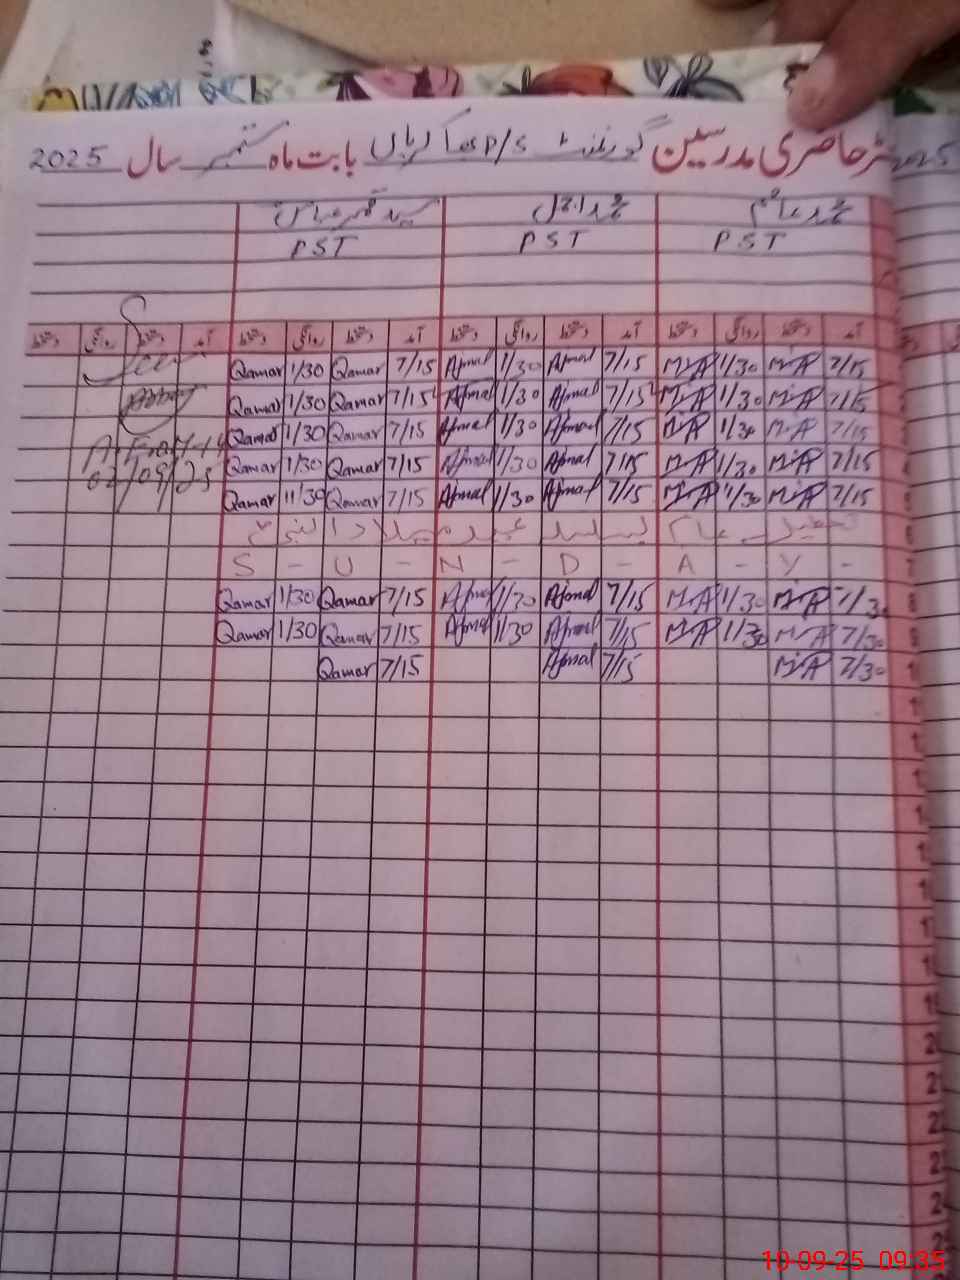 رجسٹر حاضری مدرسین گورنمنٹ P/S بابت ماہ ستمبر سال 2025
محمد عاصم محمد اجمل سید قمر عباس
PST PST PST
آمد دستخط روانگی دستخط آمد دستخط روانگی دستخط آمد دستخط روانگی دستخط آمد دستخط روانگی دستخط
Qamar 1/30 Qamar 7/15 Ajmal 1/30 Ajmal 7/15 M.A 1/30 M.A 7/15
Qamar 1/30 Qamar 7/15 Ajmal 1/30 Ajmal 7/15 M.A 1/30 M.A 7/15
Qamar 1/30 Qamar 7/15 Ajmal 1/30 Ajmal 7/15 M.A 1/30 M.A 7/15
Qamar 1/30 Qamar 7/15 Ajmal 1/30 Ajmal 7/15 M.A 1/30 M.A 7/15
02/09/25 Qamar 11/30 Qamar 7/15 Ajmal 1/30 Ajmal 7/15 M.A 1/30 M.A 7/15
تعطیل عام بسلسلہ عید میلاد النبی
S - U - N - D - A - Y -
Qamar 1/30 Qamar 7/15 Ajmal 1/30 Ajmal 7/15 M.A 1/30 M.A 7/30
Qamar 1/30 Qamar 7/15 Ajmal 1/30 Ajmal 7/15 M.A 1/30 M.A 7/30
Qamar 7/15 Ajmal 7/15 M.A 7/30
10-09-25 09:35